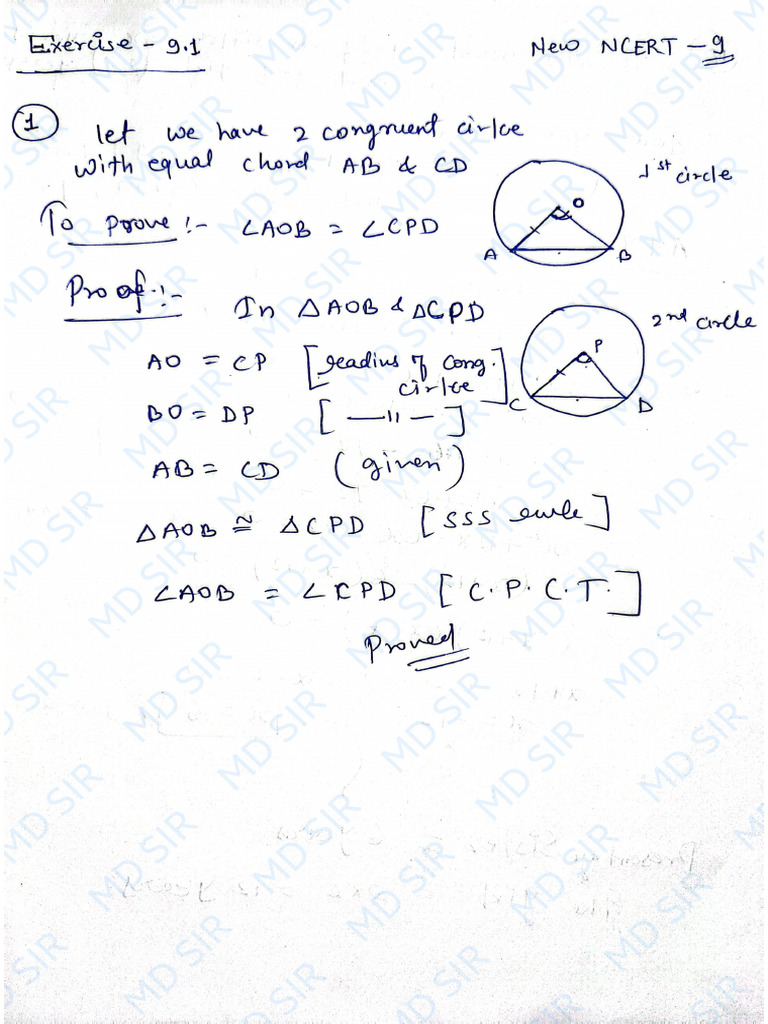 Exercise - 9.1
New NCERT - 9
1 let we have 2 congruent cirlce
with equal chord AB & CD
1st circle
O
A B
To prove :- ∠AOB = ∠CPD
Proof :- In △AOB & △CPD
2nd circle
P
C D
AO = CP [readius of cong.
cirlce]
BO = DP [ —〃— ]
AB = CD (given)
△AOB ≅ △CPD [SSS rule]
∠AOB = ∠CPD [C.P.C.T.]
Proved
MD SIR